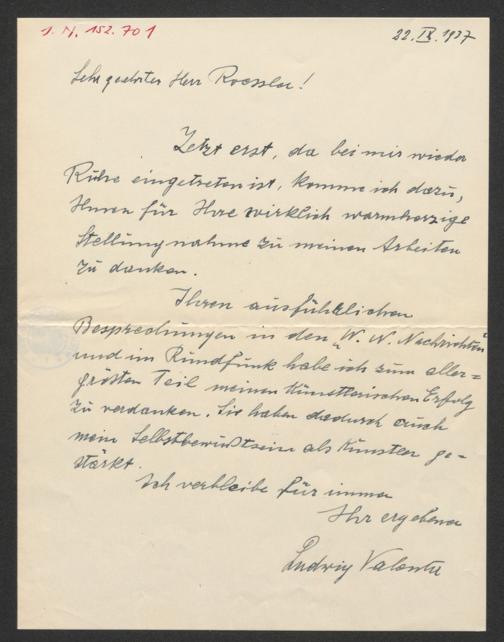 J. N. 152.701
22. IX. 1937
Sehr geehrter Herr Roessler!
Jetzt erst, da bei mir wieder
Ruhe eingetreten ist, komme ich dazu,
Ihnen für Ihre wirklich warmherzige
Stellungnahme zu meinen Arbeiten
zu danken.
Ihren ausführlichen
Besprechungen in den „W. N. Nachrichten"
und im Rundfunk habe ich zum aller=
größten Teil meinen künstlerischen Erfolg
zu verdanken. Sie haben dadurch auch
mein Selbstbewußtsein als Künstler ge-
stärkt.
Ich verbleibe für immer
Ihr ergebener
Ludwig